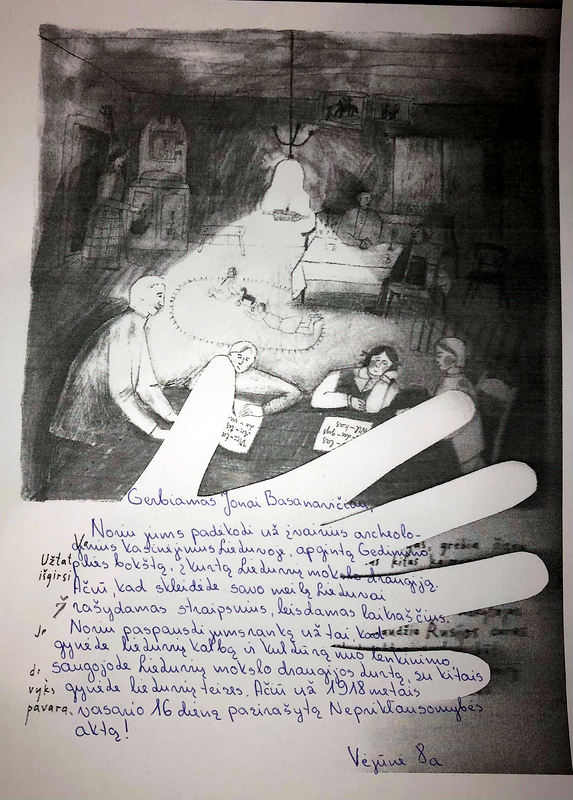 Gerbiamas Jonai Basanavičiau,
Noriu jums padėkoti už įvairius archeolo-
ginius kasinėjimus Lietuvoje, apgintą Gedimino
pilies bokštą, įkurtą Lietuvių mokslo draugiją.
Ačiū, kad skleidėte savo meilę Lietuvai
rašydamas straipsnius, leisdamas laikraščius.
Noriu paspausti jums ranką už tai kad
gynėte lietuvių kalbą ir kultūrą nuo lenkinimo,
saugojote Lietuvių mokslo draugijos turtą, su kitais
gynėte lietuvių teises. Ačiū už 1918 metais
vasario 16 dieną pasirašytą Nepriklausomybės
aktą!
Vėjūnė 8a
Užtat
išgirsi
Je
di
vyks
pavara